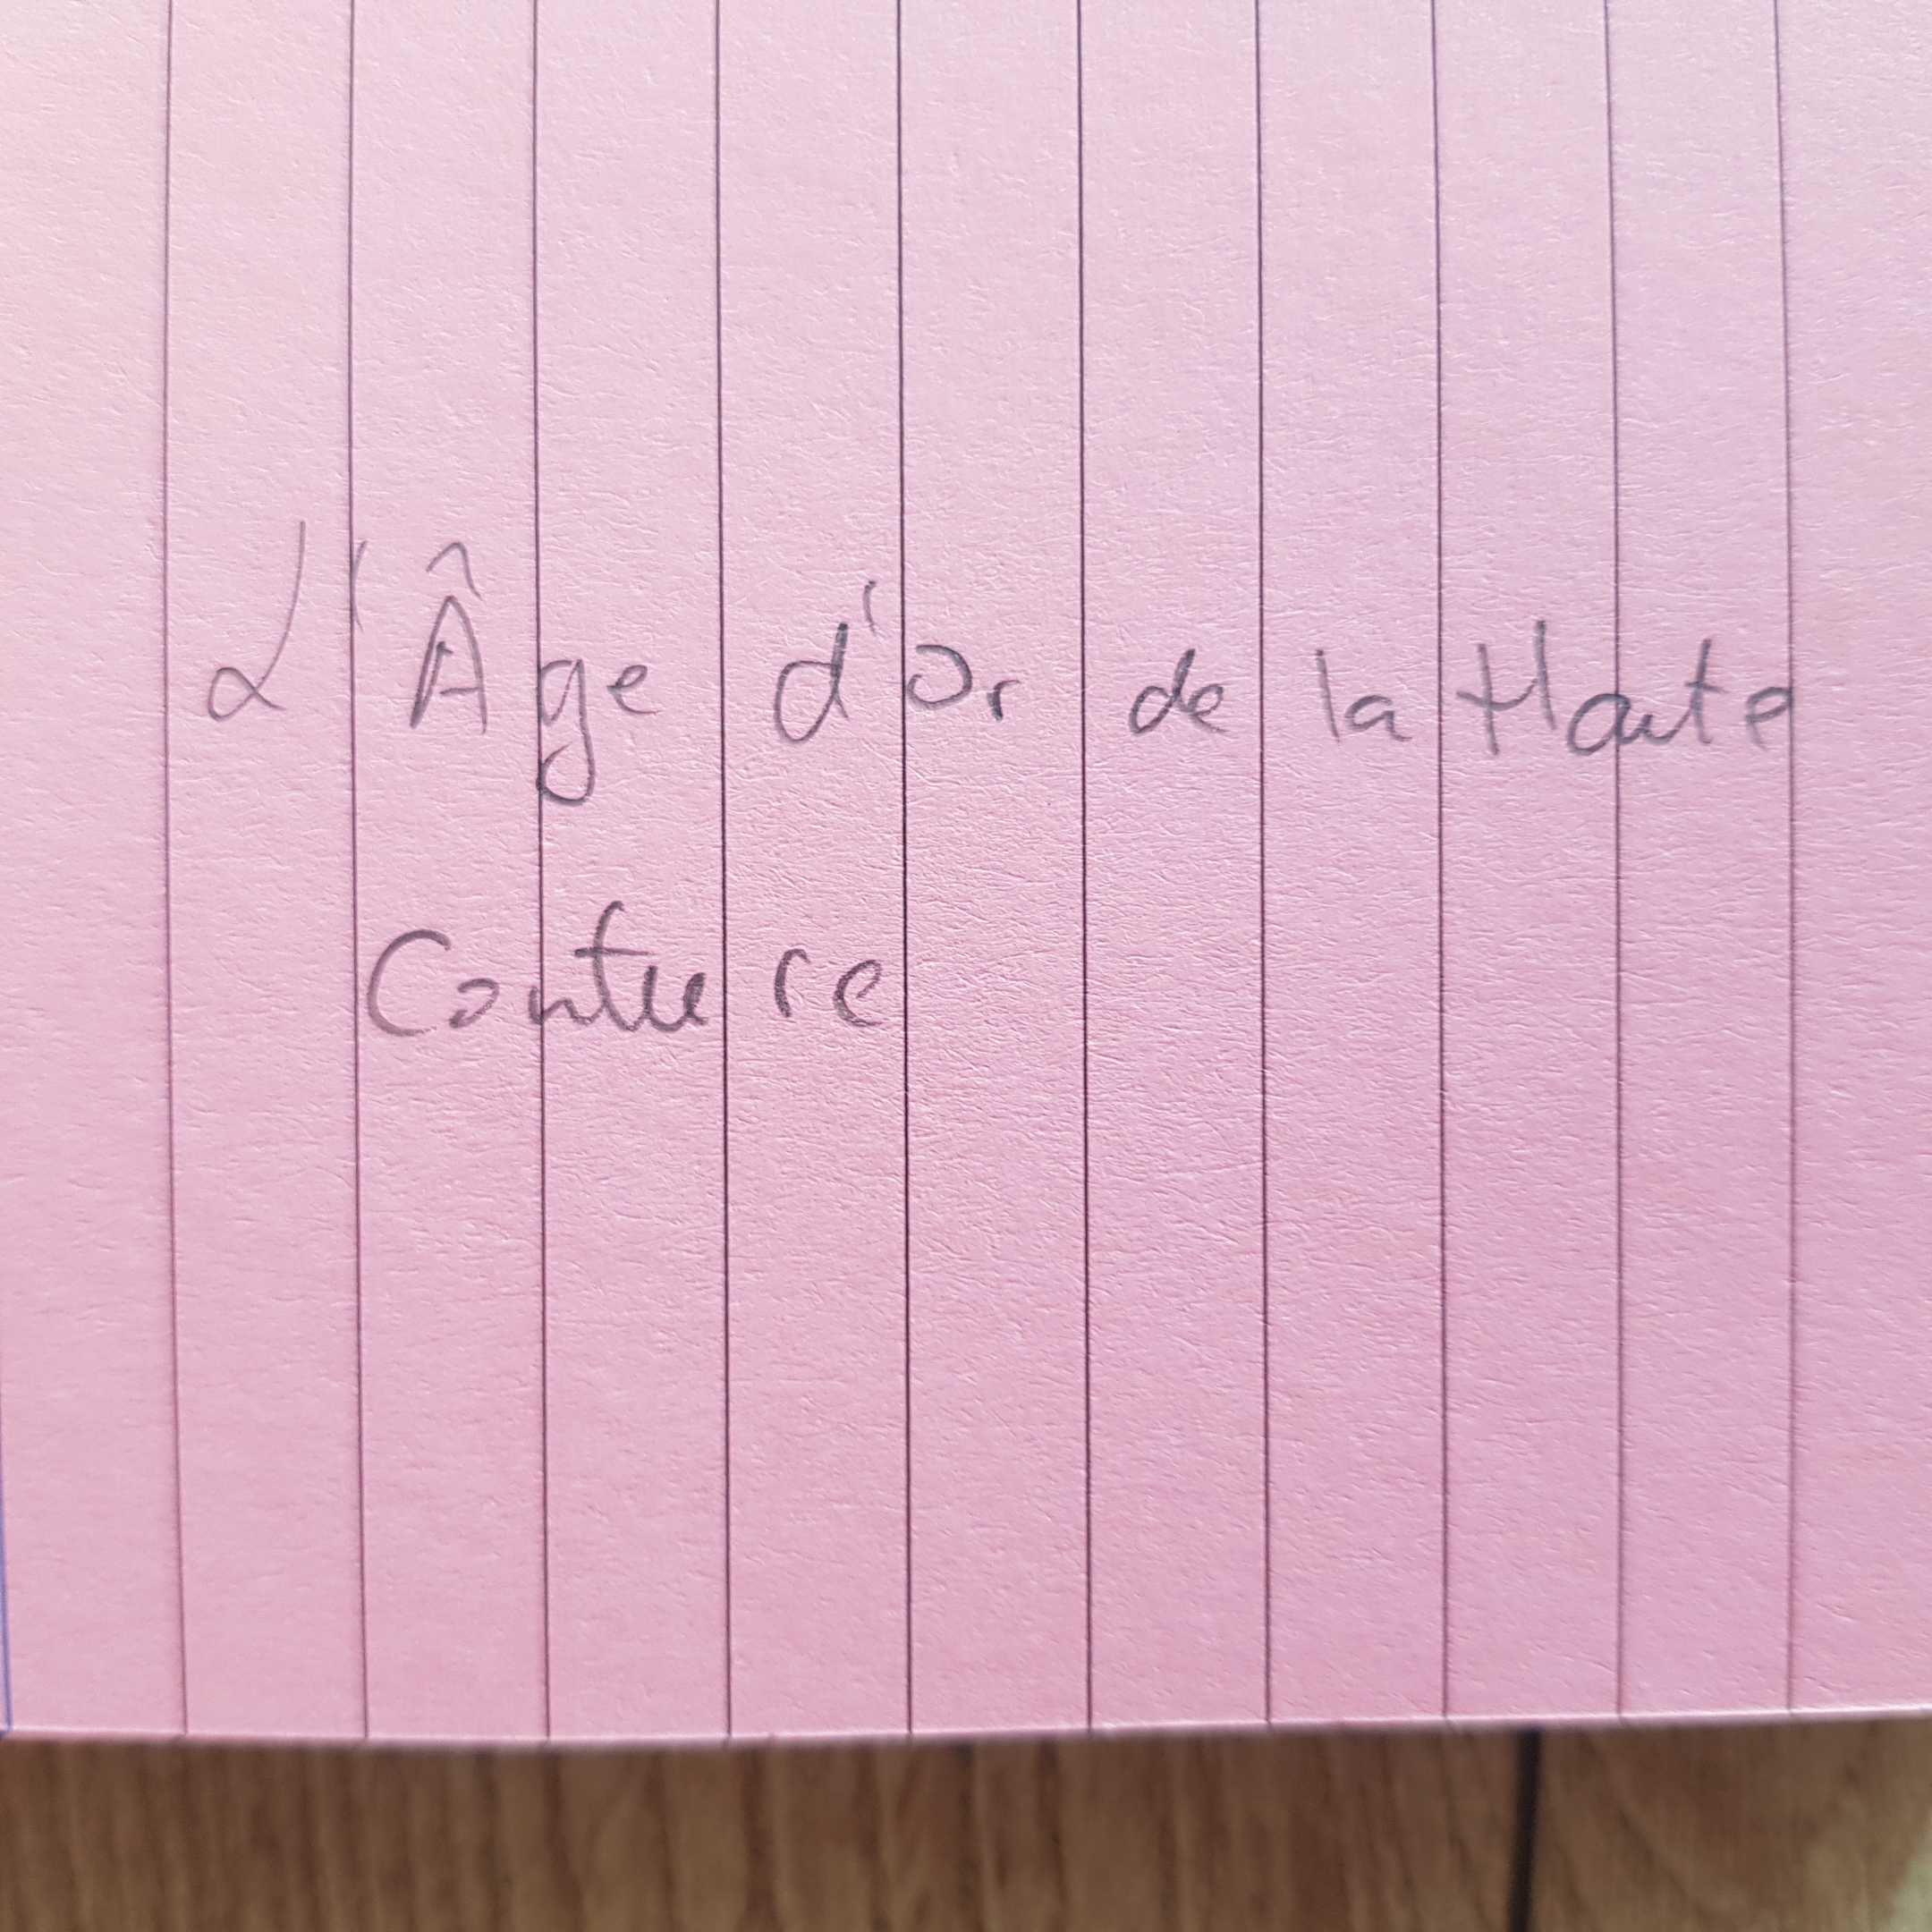 L'Âge d'Or de la Haute
Couture